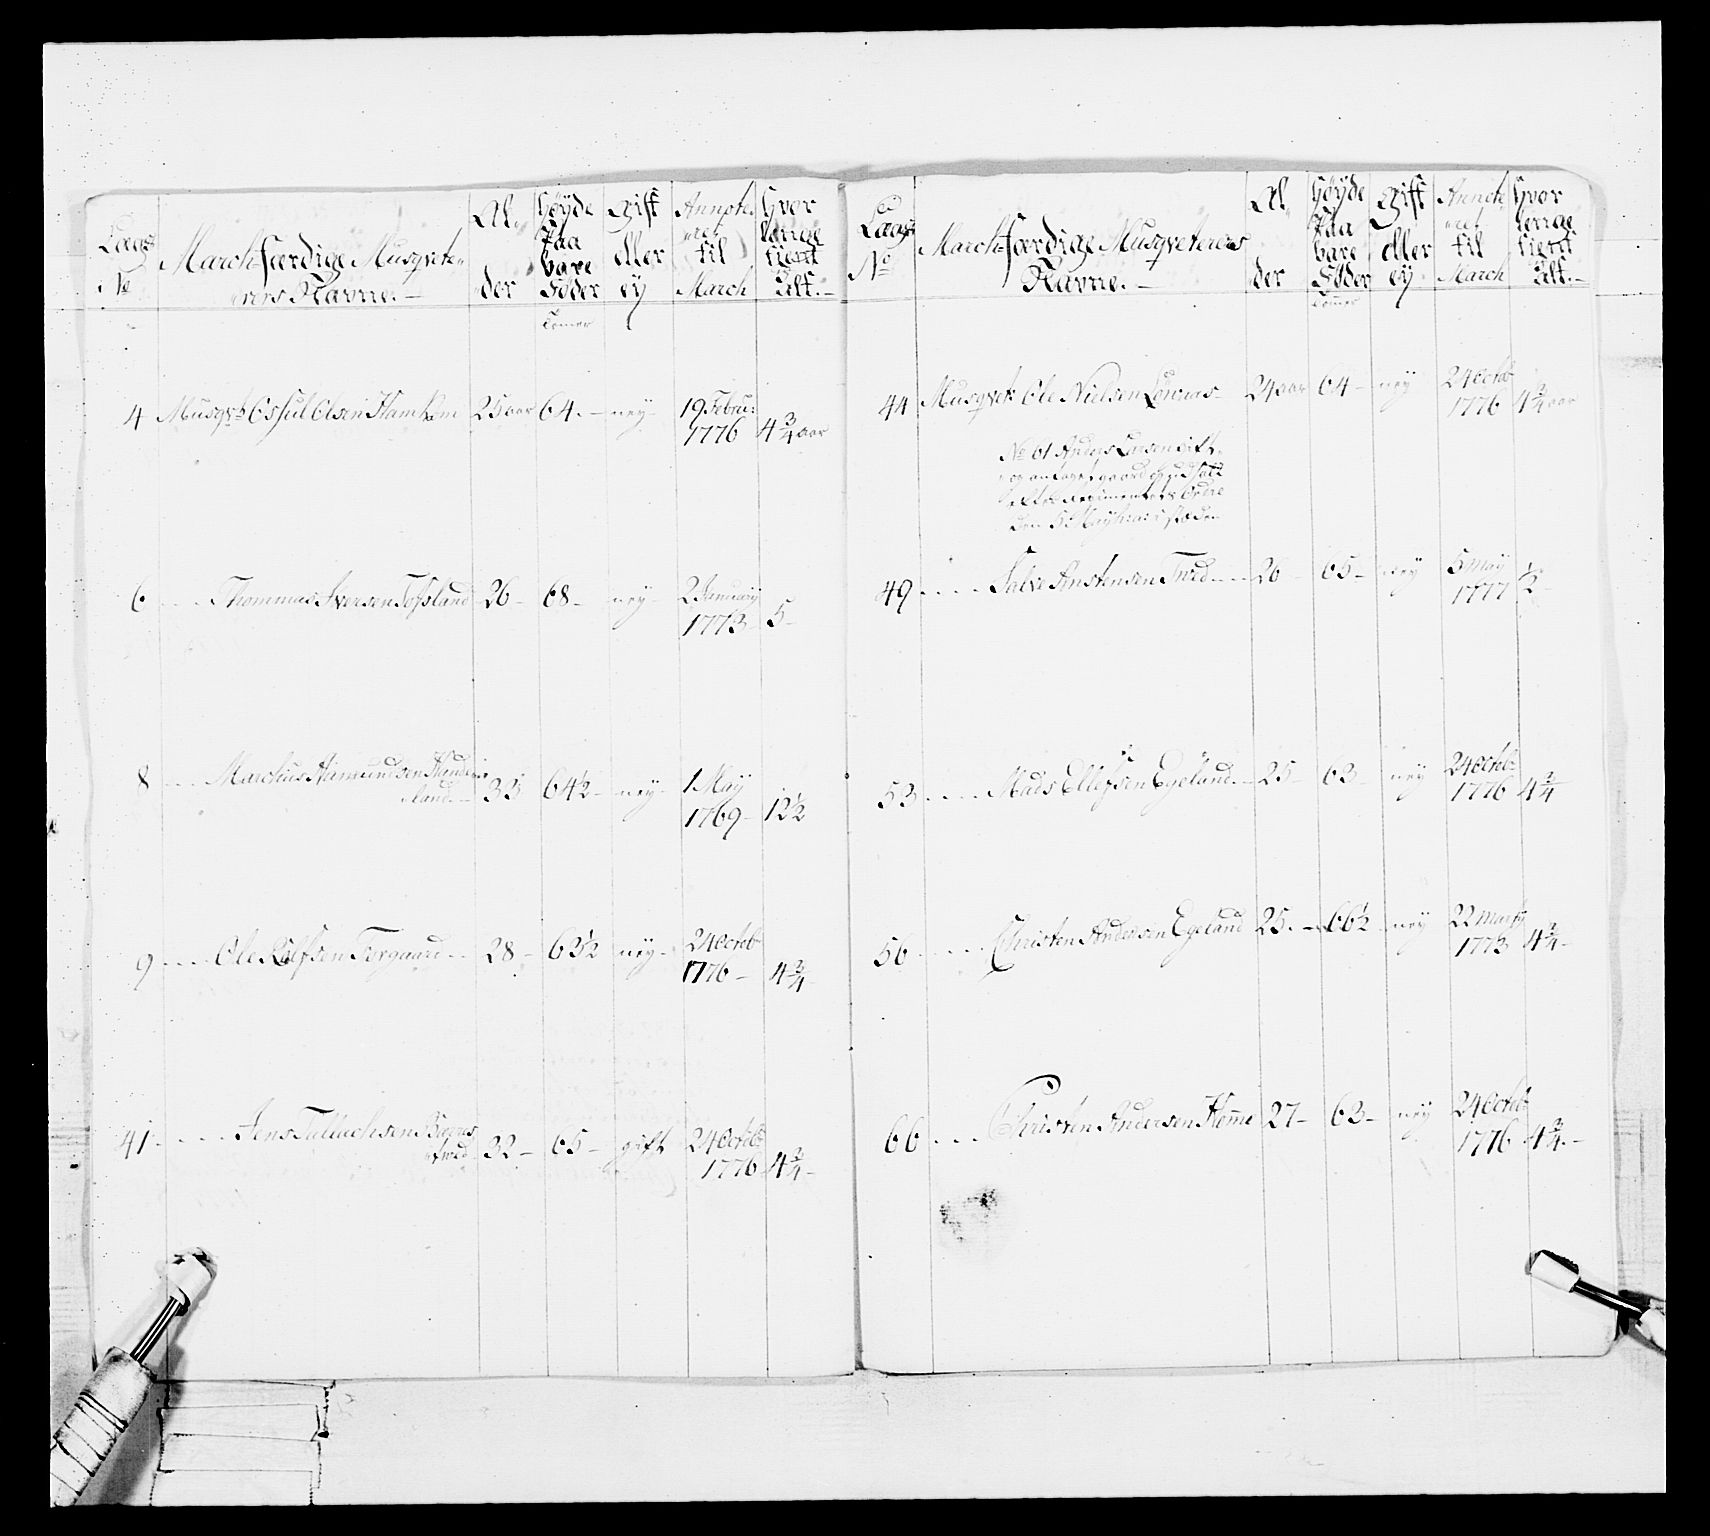 Laags No
March færdige Musqvete-
rers Navne.
Al-
der
Høyde
Paa
bare
Føder
Tomer
Gift
eller
ey
Annote-
ret
til
March
Hvor
lenge
tient
i Alt.
4 Musqvt: Osful Olsen Hamkom 25 aar 64. ney 19 Febru:
1776 4 3/4 aar
6 Thommas Iversen Tofsland 26 68 ney 2 January
1773 5
8 Marchus Aamundsen
land 33 64½ ney 1 May
1769 12½
9 Ole Rolfsen Torgaard 28 63½ ney 24 Octob:
1776 4 3/4
41 Jens Tallachsen
32 65 gift 24 Octob:
1776 4 3/4
Laags
No
March færdige Musqveterers
Navne.
Al-
der
Høyde
Paa
bare
Føder
Tomer
Gift
eller
ey
Annote-
ret
til
March
Hvor
lenge
tient
i Alt.
44 Musqvet: Ole Nielsen 24 aar 64 ney 24 Octob:
1776 4 3/4 aar
No 61 Anders Larsen gift
og antaget gaard og udsatt
efter Regimentets Ordre
den 5 May
49 Salve Anstensen Tved 26 65 ney 5 May
1777 ½
53 Mads Ellefsen Egeland 25 63 ney 24 Octob:
1776 4 3/4
56 Christen Andersen Egeland 25 66½ ney 22 Marty
1773 4 3/4
66 Christen Andersen Homme 27 63 ney 24 Octob:
1776 4 3/4